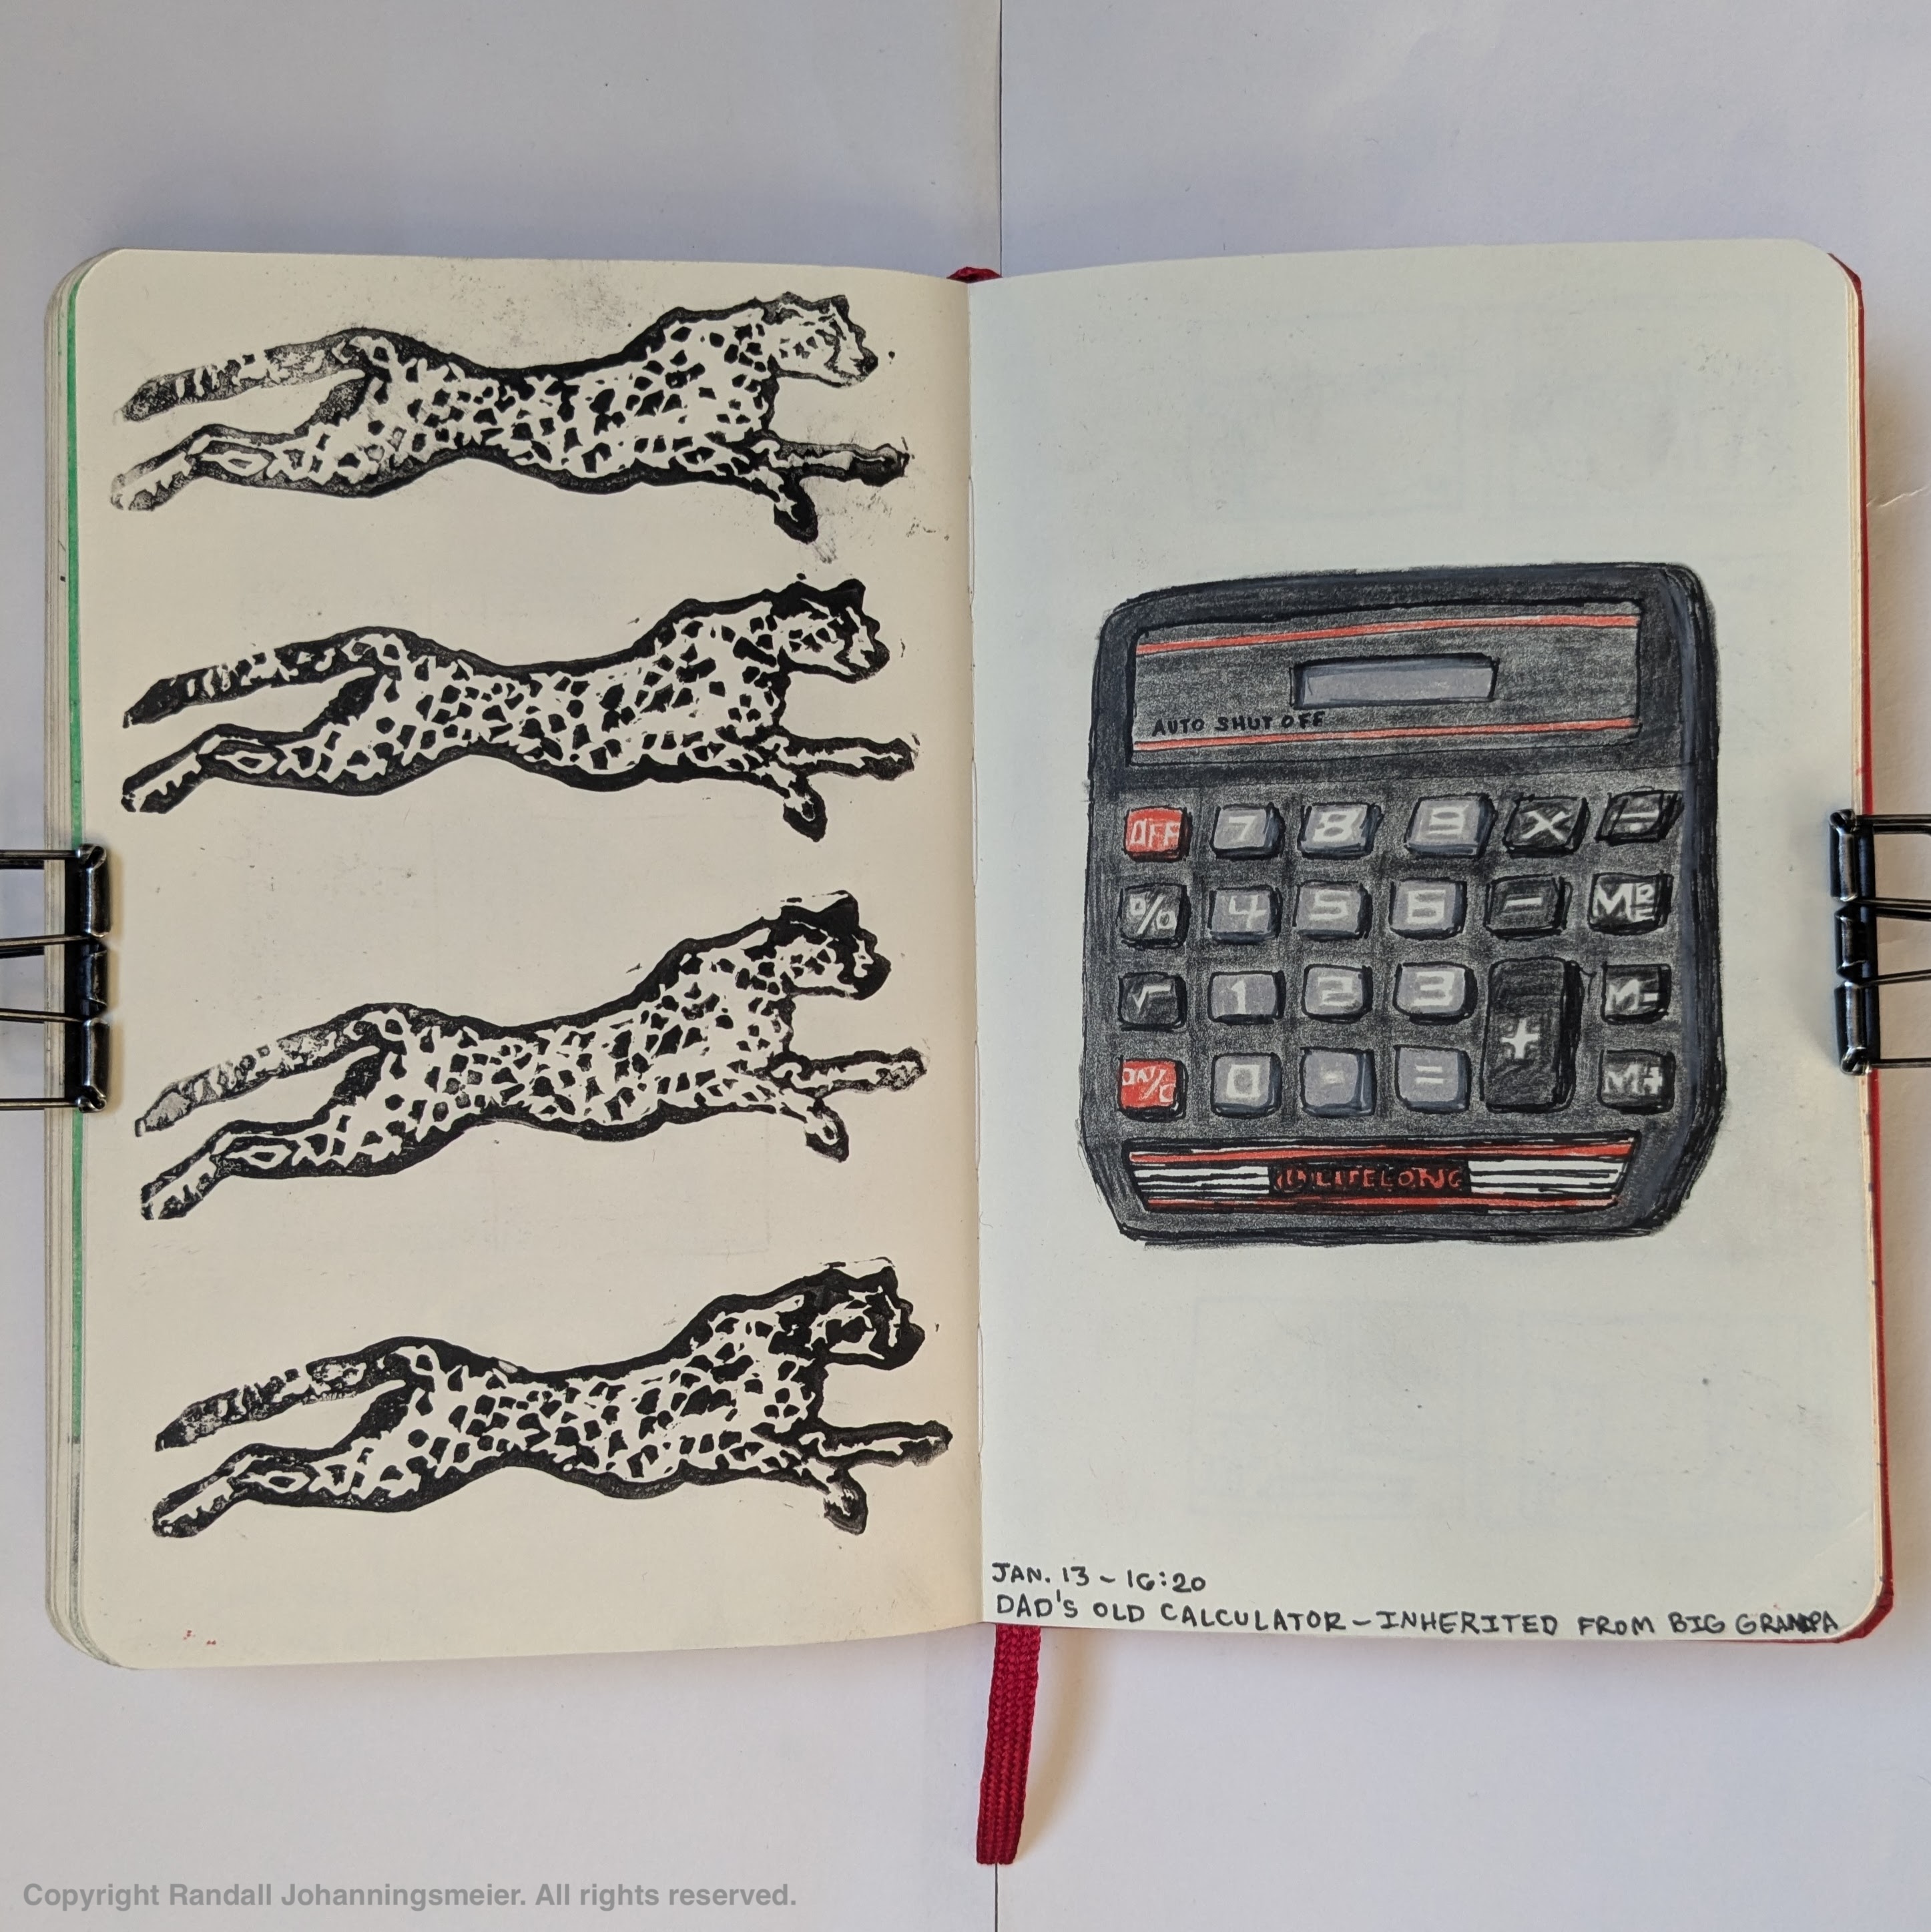 AUTO SHUT OFF
OFF 7 8 9 X ÷
% 4 5 6 - MRE
√ 1 2 3 + M-
ON/C 0 . = M+
LIFELONG
JAN. 13 - 16:20
DAD'S OLD CALCULATOR - INHERITED FROM BIG GRANDPA
Copyright Randall Johanningsmeier. All rights reserved.